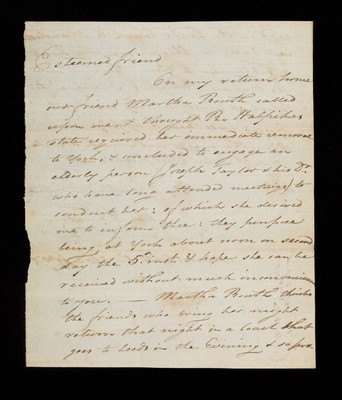 Esteemed friend
On my return home
our friend Martha Routh called
upon me & thought
state required her immediate removal
to York, & concluded to engage an
elderly person (Joseph Taylor & his Dr.
who have long attended meetings) to
conduct her: of which she desired
me to inform thee: they purpose
being at York about noon on second
day the 5th inst. & hope she can be
received without much inconvenience
to you. — Martha Routh thinks
the friends who bring her might
return that night in a coach that
goes to Leeds in the Evening &